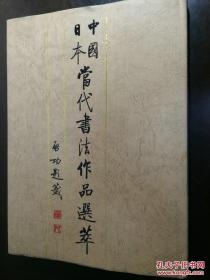 中國
日本
當代書法作品選萃
啓功題簽